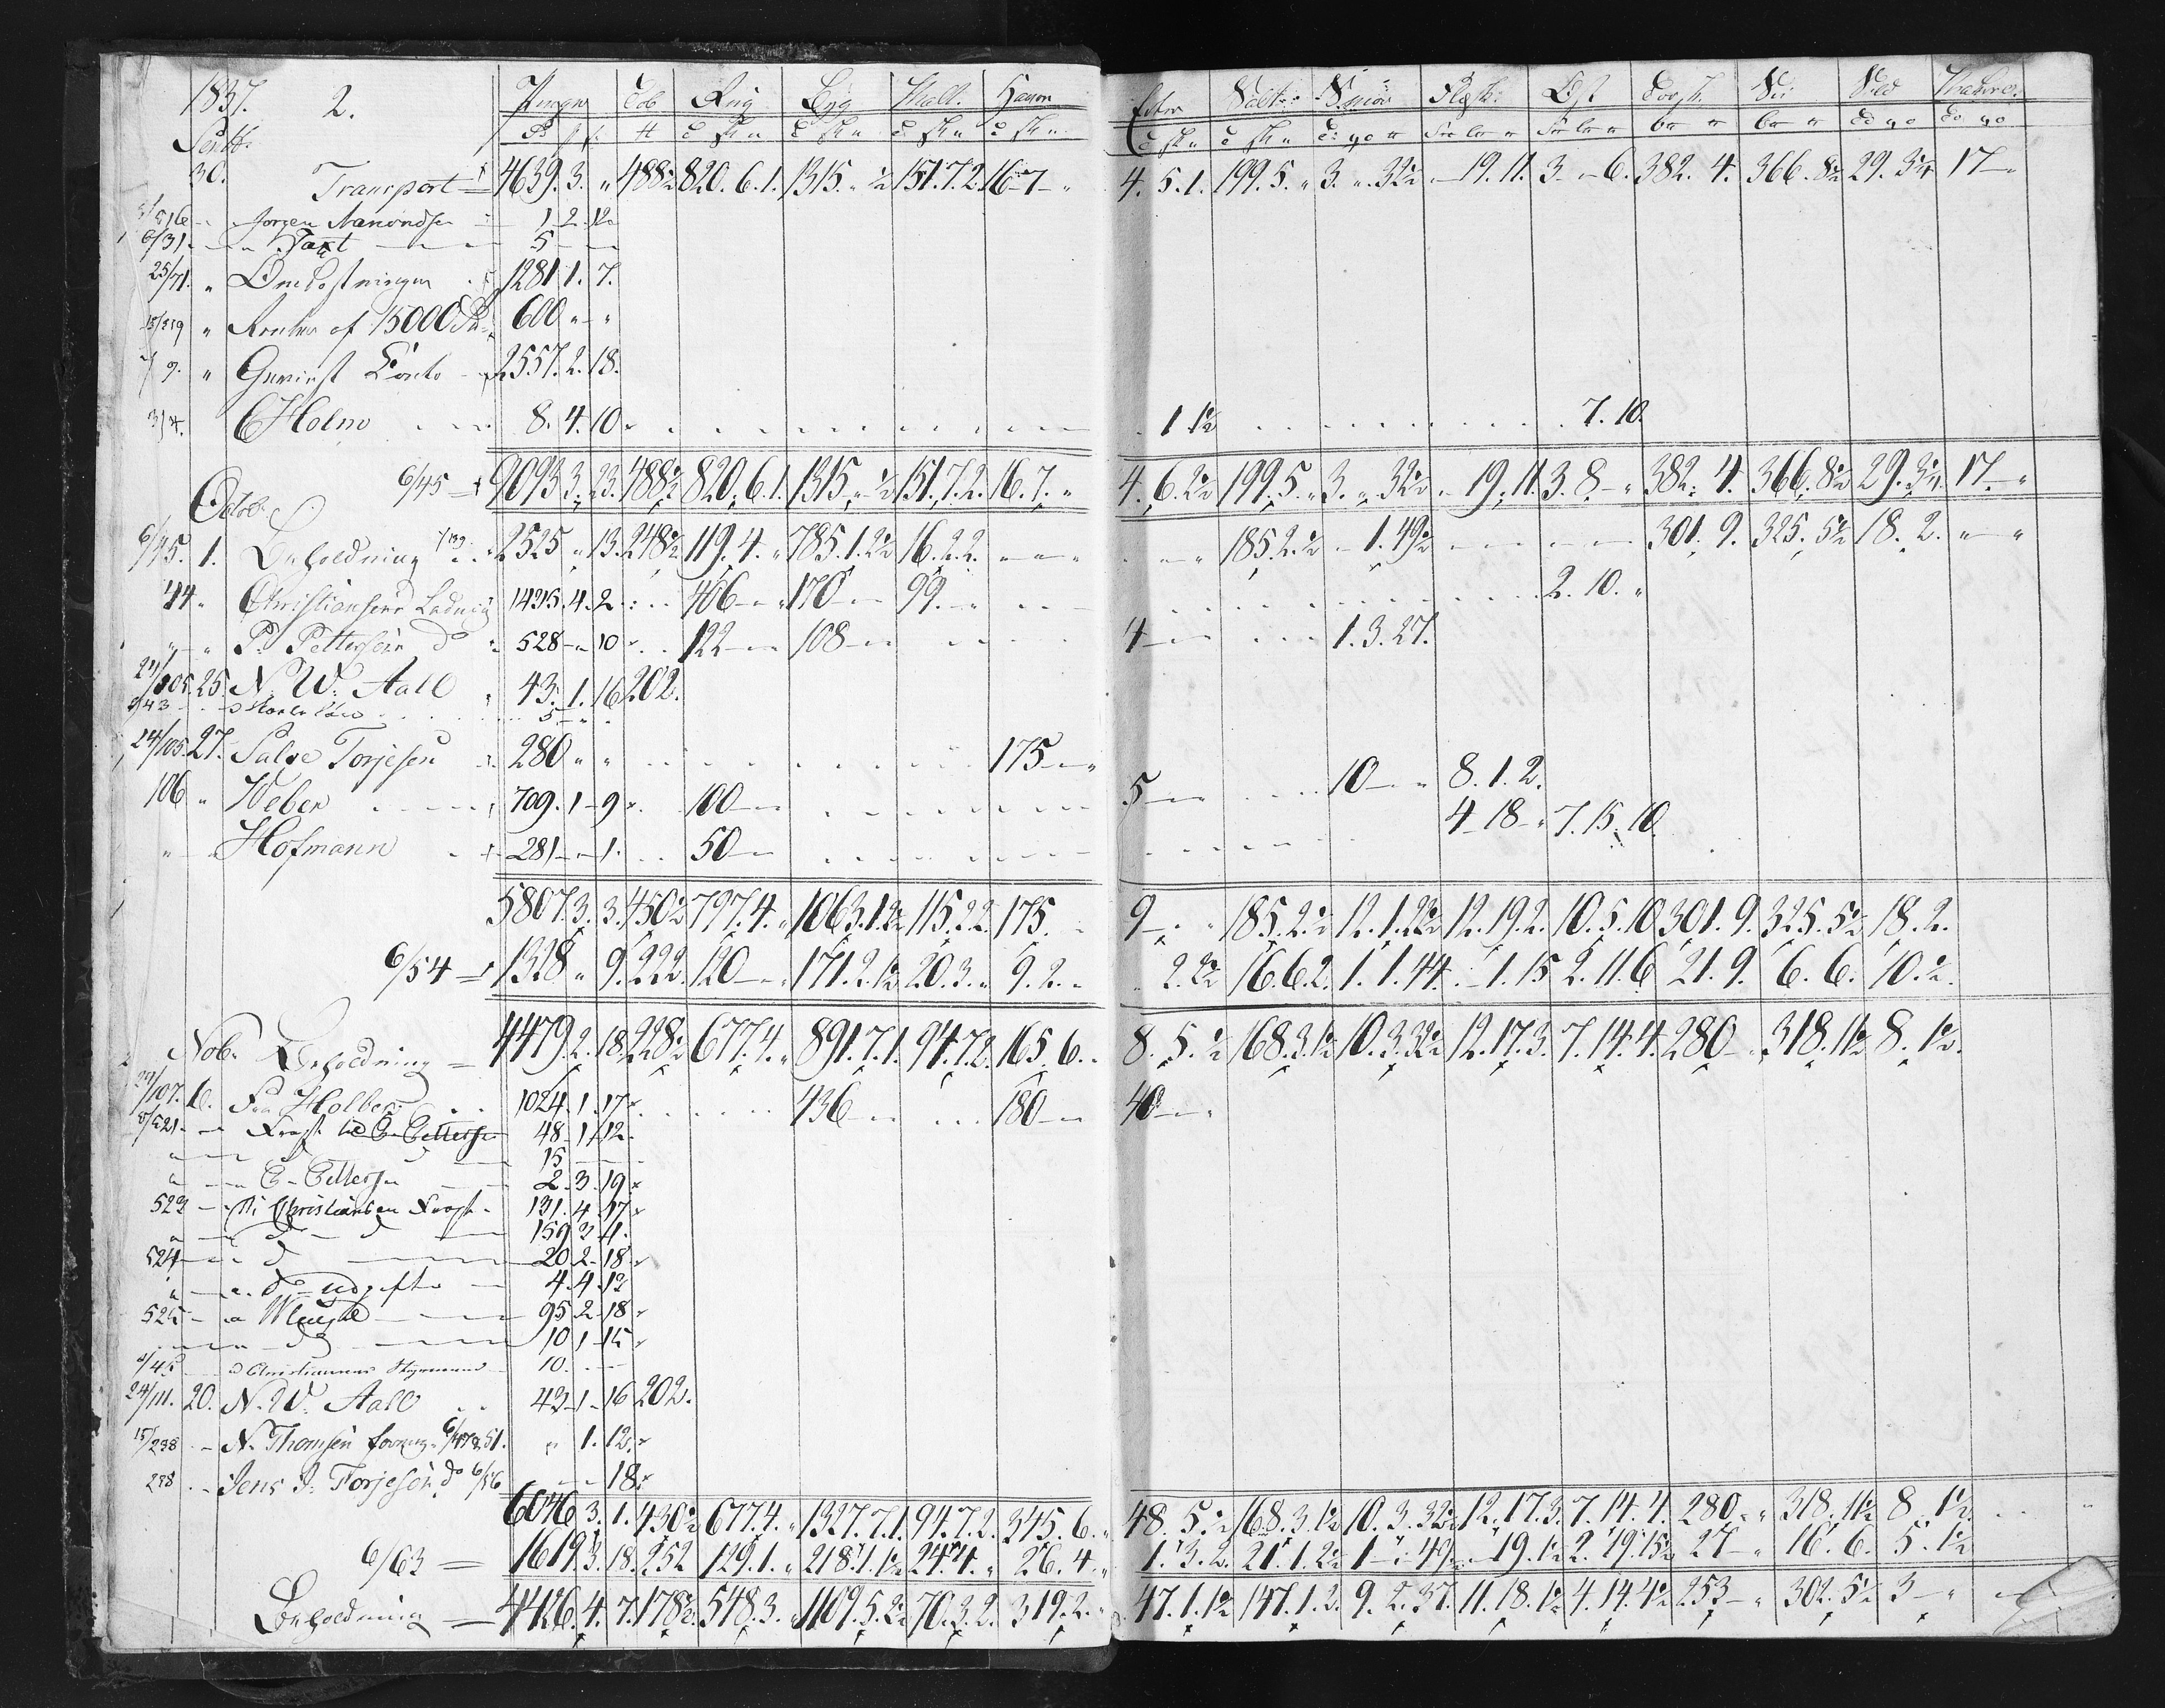 1837. 2. Penge Tob Rug Byg Malt. Havre Erter Salt Smör Flesk Ost Torsk Sei Sild
Septbr
30. Transport 4639. 3. " 488½ 820. 6. 1. 1315. " ½ 151. 7. 2. 16-7- " 4. 5. 1. 199. 5. " 3. " 32½ - 19. 11. 3 - - 6. 382. 4. 366. 8½ 29. 3¼ 17 -
Jörgen Aanondsen 1 2 12
6/31 - " Taxt 5 - -
25/71. " Omkostninger 1281 1. 7.
" Renter af 15000 Sp 600 " "
7/9. " Gevinst Conto 2557. 2. 18.
3/4. C Holm 8. 4. 10 1 1½ 7. 10.
6/45 9093 3. 23. 488½ 820. 6. 1. 1315 " ½ 151. 7. 2. 16. 7. " 4. 6. 2½ 199. 5. " 3. " 32½ - 19. 11. 3. 8. - " 382. 4. 366. 8½ 29. 3¼ 17. - "
Octob.
6/45. 1. Beholdning 2525 " 13. 248½ 119. 4. " 785. 1. 2½ 16. 2. 2. 185. 2. ½ - 1. 49½ 301. 9. 325. 5½ 18. 2. " "
44 " Christiansens Ladning 1435. 4. 2 406 - " 170 - 99. - 2. 10. "
" - " P. Pettersen do 528 - " 10 122 - 108 - 4 - 1. 3. 27.
24/105. 25. N. W. Aall 43. 1. 16 202.
5 - "
24/105. 27. Salve Torjesen 280 " " 175 - " 10 - " 8. 1. 2.
106 " Weber 709. 1 - 9 100 - 5 - 4 - 18 - " 7. 15. 10
" - " Hofmann 281 - - 1. 50 -
5807. 3. 3. 450½ 797. 4. " 1063. 1. 2½ 115. 2. 2. 175. 9 - 185. 2. ½ 12. 1. 22½ 12. 19. 2. 10. 5. 10 301. 9. 325. 5½ 18. 2.
6/54 1328 " 9. 222. 120 - " 171. 2. 1½ 20. 3. " 9. 2. - " 2. 2½ 16. 6. 2. 1. 1. 44. - 1. 15 2. 11. 6 21. 9. 6. 6. 10. ½.
Nobr Beholdning 4479. 2. 18. 228½ 677. 4. " 891. 7. 1. 94. 7. 2. 165. 6. 8. 5. ½ 168. 3. 1½ 10. 3. 32½ 12. 17. 3. 7. 14. 4. 280 - 318. 11½ 8. 1½.
107. 6. Fra Holbek 1024. 1. 17 436 - 180 - 40 -
8/521 - " Fragt P. Pettersen 48 - 1 12
" - " d d 15
" - " P. Pettersen 2. 3. 19
523 - " Christiansen Fragt 131. 4. 17
" - " d d 159 3 4.
524 - " d 20. 2. 18
" - " do udgifter 4. 4. 12
525 - " 95 2 - 18
d 10 1 - 15
Christiansens Styrmand 10. - -
24/111. 20. N. W. Aall 43 - 1 - 16 202.
15/238 - N. Thomsen 6/47 & 51. " 1. 12.
238 - Jens J. Torjesen do 6/56 - - 18
6046 3. 1. 430½ 677. 4. " 1327. 7. 1. 94. 7. 2. 345. 6. " 48. 5. ½ 168. 3. 1½ 10. 3. 32½ 12. 17. 3. 7. 14. 4. 280 - " 318. 11½ 8. 1½
6/63 1619 3. 18. 252 129. 1. " 218. 1. 1½ 24. 4. " 26. 4. " 1. 3. 2. 21. 1. 2½ 1 - " 49 - 19. 1½ 2. 19. 15½ 27 - " 16. 6. 5. 1½
Beholdning 4426. 4. 7. 178½ 548. 3. " 1109. 5. 2½ 70. 3. 2. 319. 2. " 47. 1. 1½ 147. 1. 2. 9. 2. 37. 11. 18. 1½ 4. 14. 4½ 253 - " 302. 5½ 3 - "